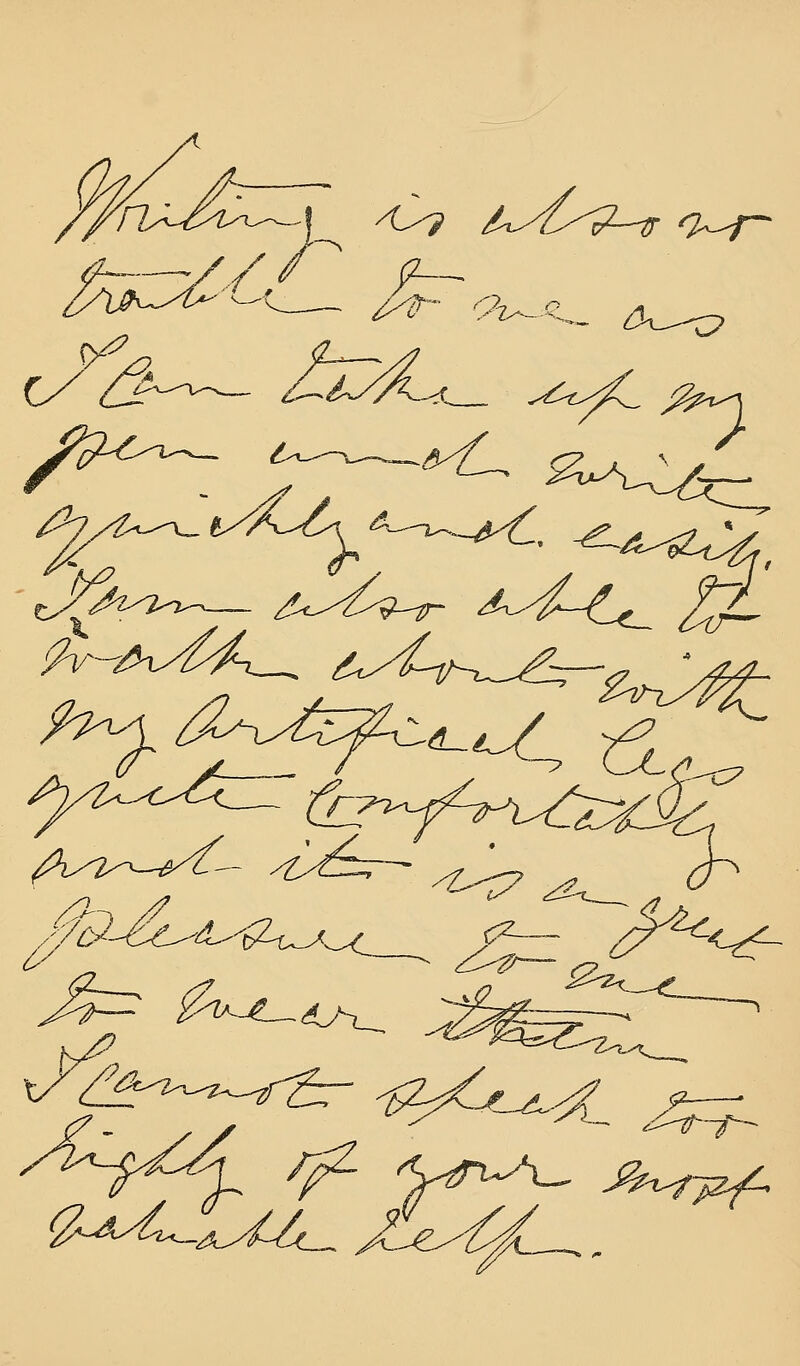 Writing is also no
trouble to me as
I can take up my
pen and write
quickly and easily.
I am also able to
walk about with
my Artifical legs
quite comfortably
and it is a great
pleasure to me
to wear them
I cannot speak too
highly of your most
valuable help.